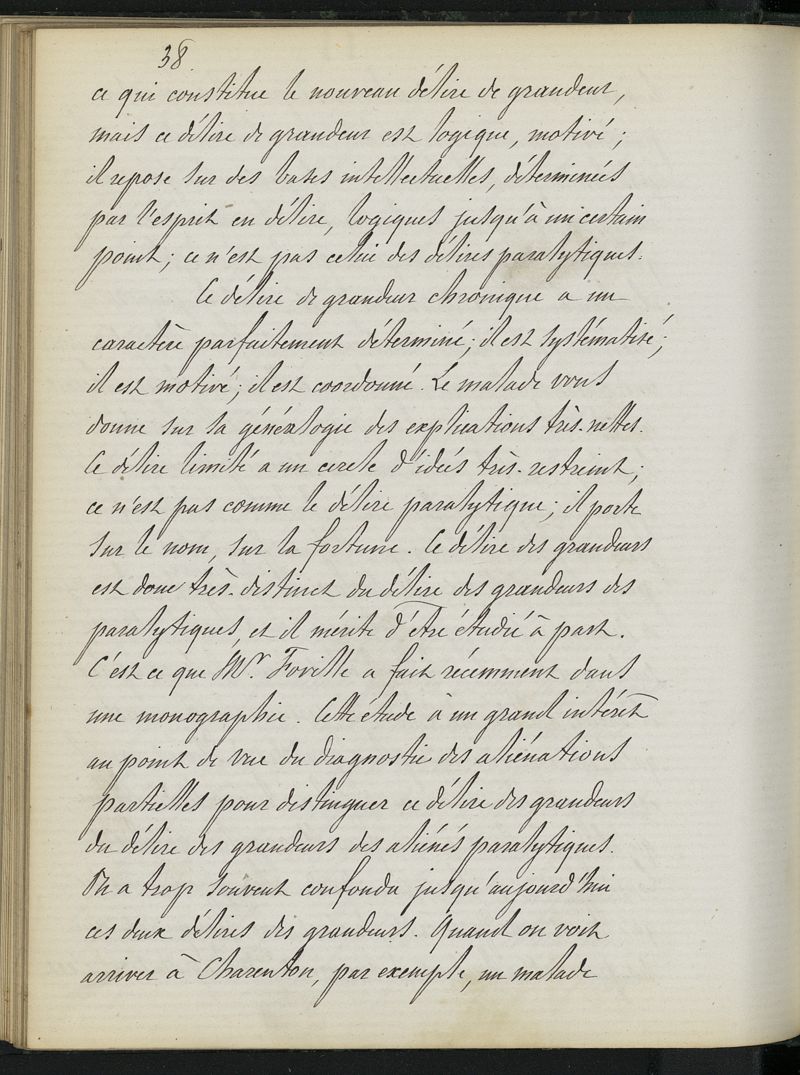 38
ce qui constitue le nouveau délire de grandeur,
mais ce délire de grandeur est logique, motivé ;
il repose sur des bases intellectuelles, déterminées
par l'esprit en délire, logiques jusqu'à un certain
point ; ce n'est pas celui des délires paralytiques.
Ce délire de grandeur chronique a un
caractère parfaitement déterminé ; il est systématisé ;
il est motivé ; il est coordonné. Le malade vous
donne sur sa généalogie des explications très-nettes.
Ce délire limité a un cercle d'idées très-restreint ;
ce n'est pas comme le délire paralytique ; il porte
sur le nom, sur la fortune. Ce délire des grandeurs
est donc très-distinct du délire des grandeurs des
paralytiques, et il mérite d'être étudié à part.
C'est ce que Mr. Foville a fait récemment dans
une monographie. Cette étude à un grand intérêt
au point de vue du diagnostic des aliénations
partielles pour distinguer ce délire des grandeurs
du délire des grandeurs des aliénés paralytiques.
On a trop souvent confondu jusqu'aujourd'hui
ces deux délires des grandeurs. Quand on voit
arriver à Charenton, par exemple, un malade